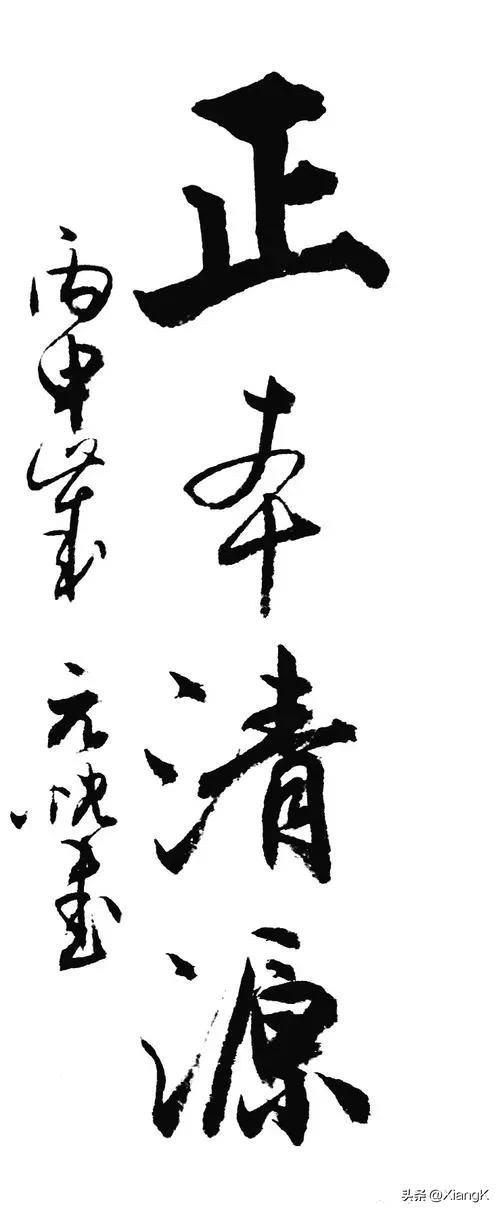 正本清源
丙申岁 元忱书
头条 @XiangK